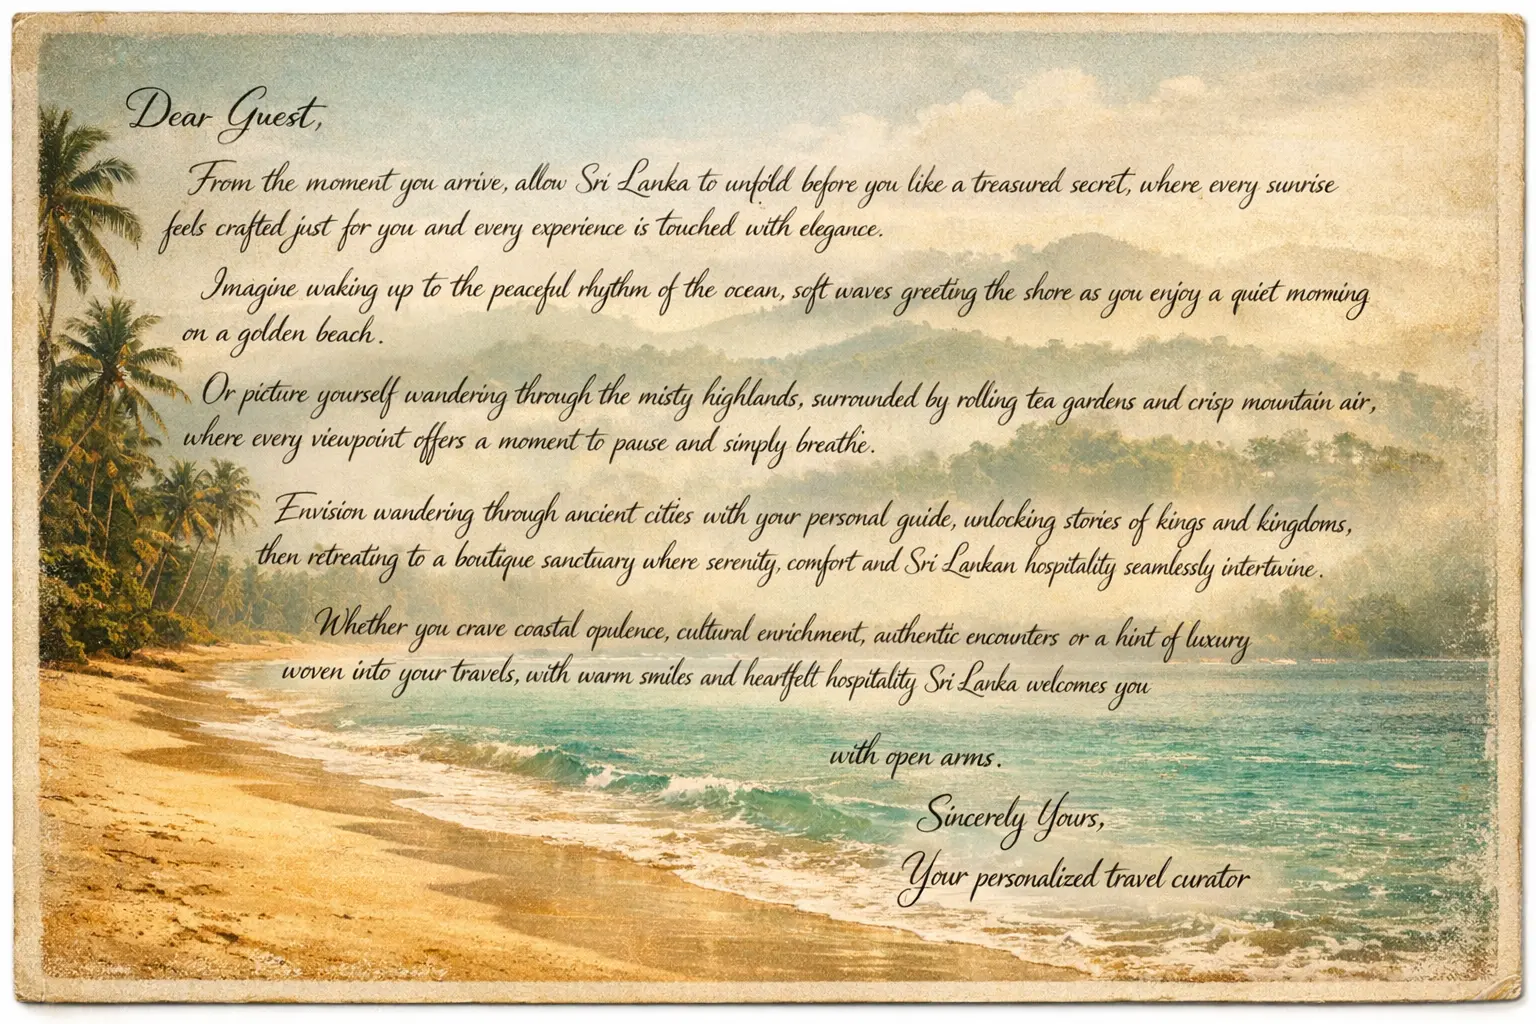 Dear Guest,
From the moment you arrive, allow Sri Lanka to unfold before you like a treasured secret, where every sunrise
feels crafted just for you and every experience is touched with elegance.
Imagine waking up to the peaceful rhythm of the ocean, soft waves greeting the shore as you enjoy a quiet morning
on a golden beach.
Or picture yourself wandering through the misty highlands, surrounded by rolling tea gardens and crisp mountain air,
where every viewpoint offers a moment to pause and simply breathe.
Envision wandering through ancient cities with your personal guide, unlocking stories of kings and kingdoms,
then retreating to a boutique sanctuary where serenity, comfort and Sri Lankan hospitality seamlessly intertwine.
Whether you crave coastal opulence, cultural enrichment, authentic encounters or a hint of luxury
woven into your travels, with warm smiles and heartfelt hospitality Sri Lanka welcomes you
with open arms.
Sincerely Yours,
Your personalized travel curator